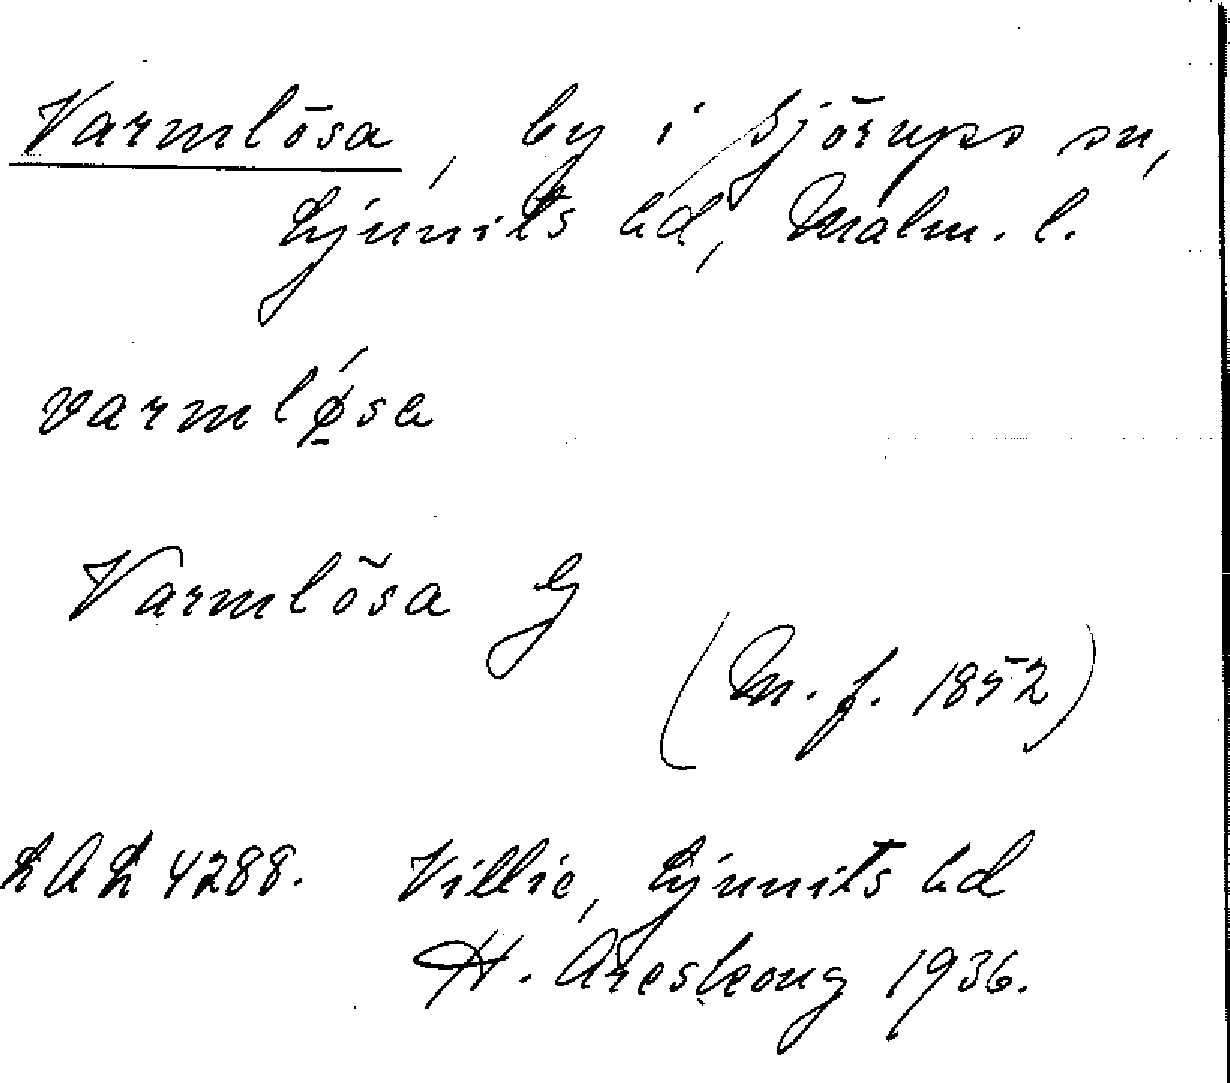 Varmlösa, by i Sjörups sn,
Ljunits hd, Malm. l.
varmlǿ̱sa
Varmlösa G
(M. f. 1852)
LAL 4288. Villie, Ljunits hd
H. Areskoug 1936.